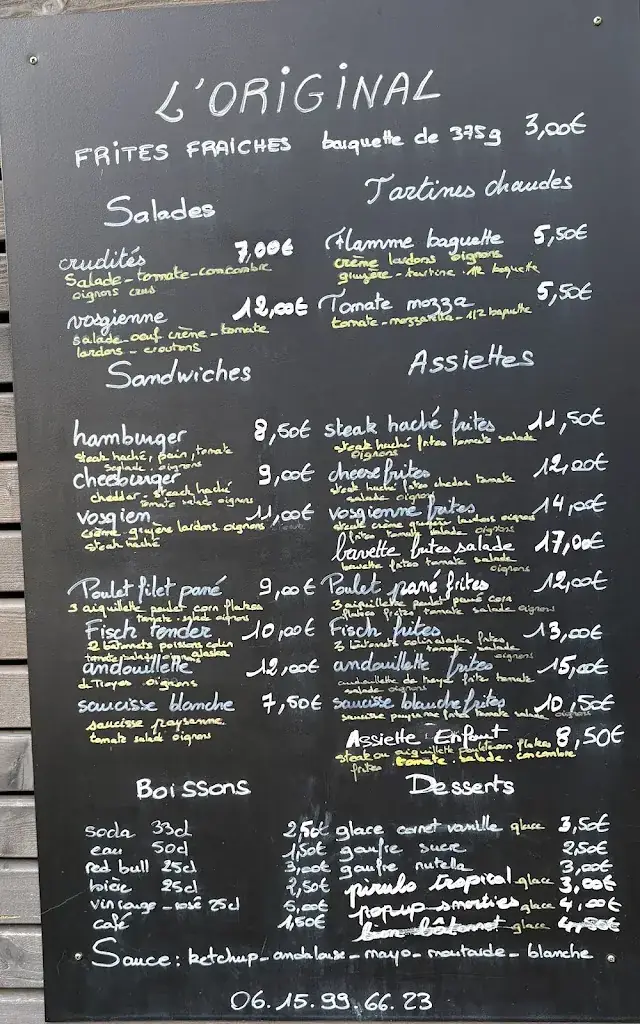 L'ORIGINAL
FRITES FRAICHES barquette de 375g 3,00€
Salades
crudités 7,00€
Salade - tomate - concombre
oignons crus
vosgienne 12,00€
salade - oeuf crème - tomate
lardons - croutons
Tartines chaudes
Flamme baguette 5,50€
crème lardons oignons
gruyère - tartine 1/2 baguette
Tomate mozza 5,50€
tomate - mozzarella - 1/2 baguette
Sandwiches
hamburger 8,50€
steak haché, pain, tomate
salade oignons
cheesburger 9,00€
cheddar - steack haché
tomate salad oignons
vosgien 11,00€
crème gruyère lardons oignons
steak haché
Poulet filet pané 9,00€
3 aiguillette poulet corn flakes
tomate salad oignons
Fisch tender 10,00€
2 batonnets poissons colin
alaska
andouillette 12,00€
de Troyes oignons
saucisse blanche 7,50€
saucisse paysanne
tomate salad oignons
Assiettes
steak haché frites 11,50€
steak haché frites tomate salade
oignons
cheese frites 12,00€
steak haché frites chedar tomate
salade oignons
vosgienne frites 14,00€
steak crème gruyère lardons oignons
frites tomate salade oignons
bavette frites salade 17,00€
bavette frites tomate salade
oignons
Poulet pané frites 12,00€
3 aiguillette poulet pané corn
flakes frites tomate salade oignons
Fisch frites 13,00€
3 batonnets colin alaska frites
tomate salade
oignons
andouillette frites 15,00€
andouillette de troyes frite tomate
salade oignons
saucisse blanche frites 10,50€
saucisse paysanne frites tomate salade oignons
Assiette Enfant 8,50€
steak ou aiguillette poulet corn flakes
frites tomate salade concombre
Boissons
soda 33cl 2,50€
eau 50cl 1,50€
red bull 25cl 3,00€
bière 25cl 2,50€
vin rouge - rosé 25cl 5,00€
café 1,50€
Desserts
glace cornet vanille glace 3,50€
gaufre sucre 2,50€
gaufre nutella 3,00€
pirulo tropical glace 3,00€
popup smarties glace 4,00€
bâtonnet glace 4,50€
Sauce : ketchup - andalouse - mayo - moutarde - blanche
06.15.99.66.23